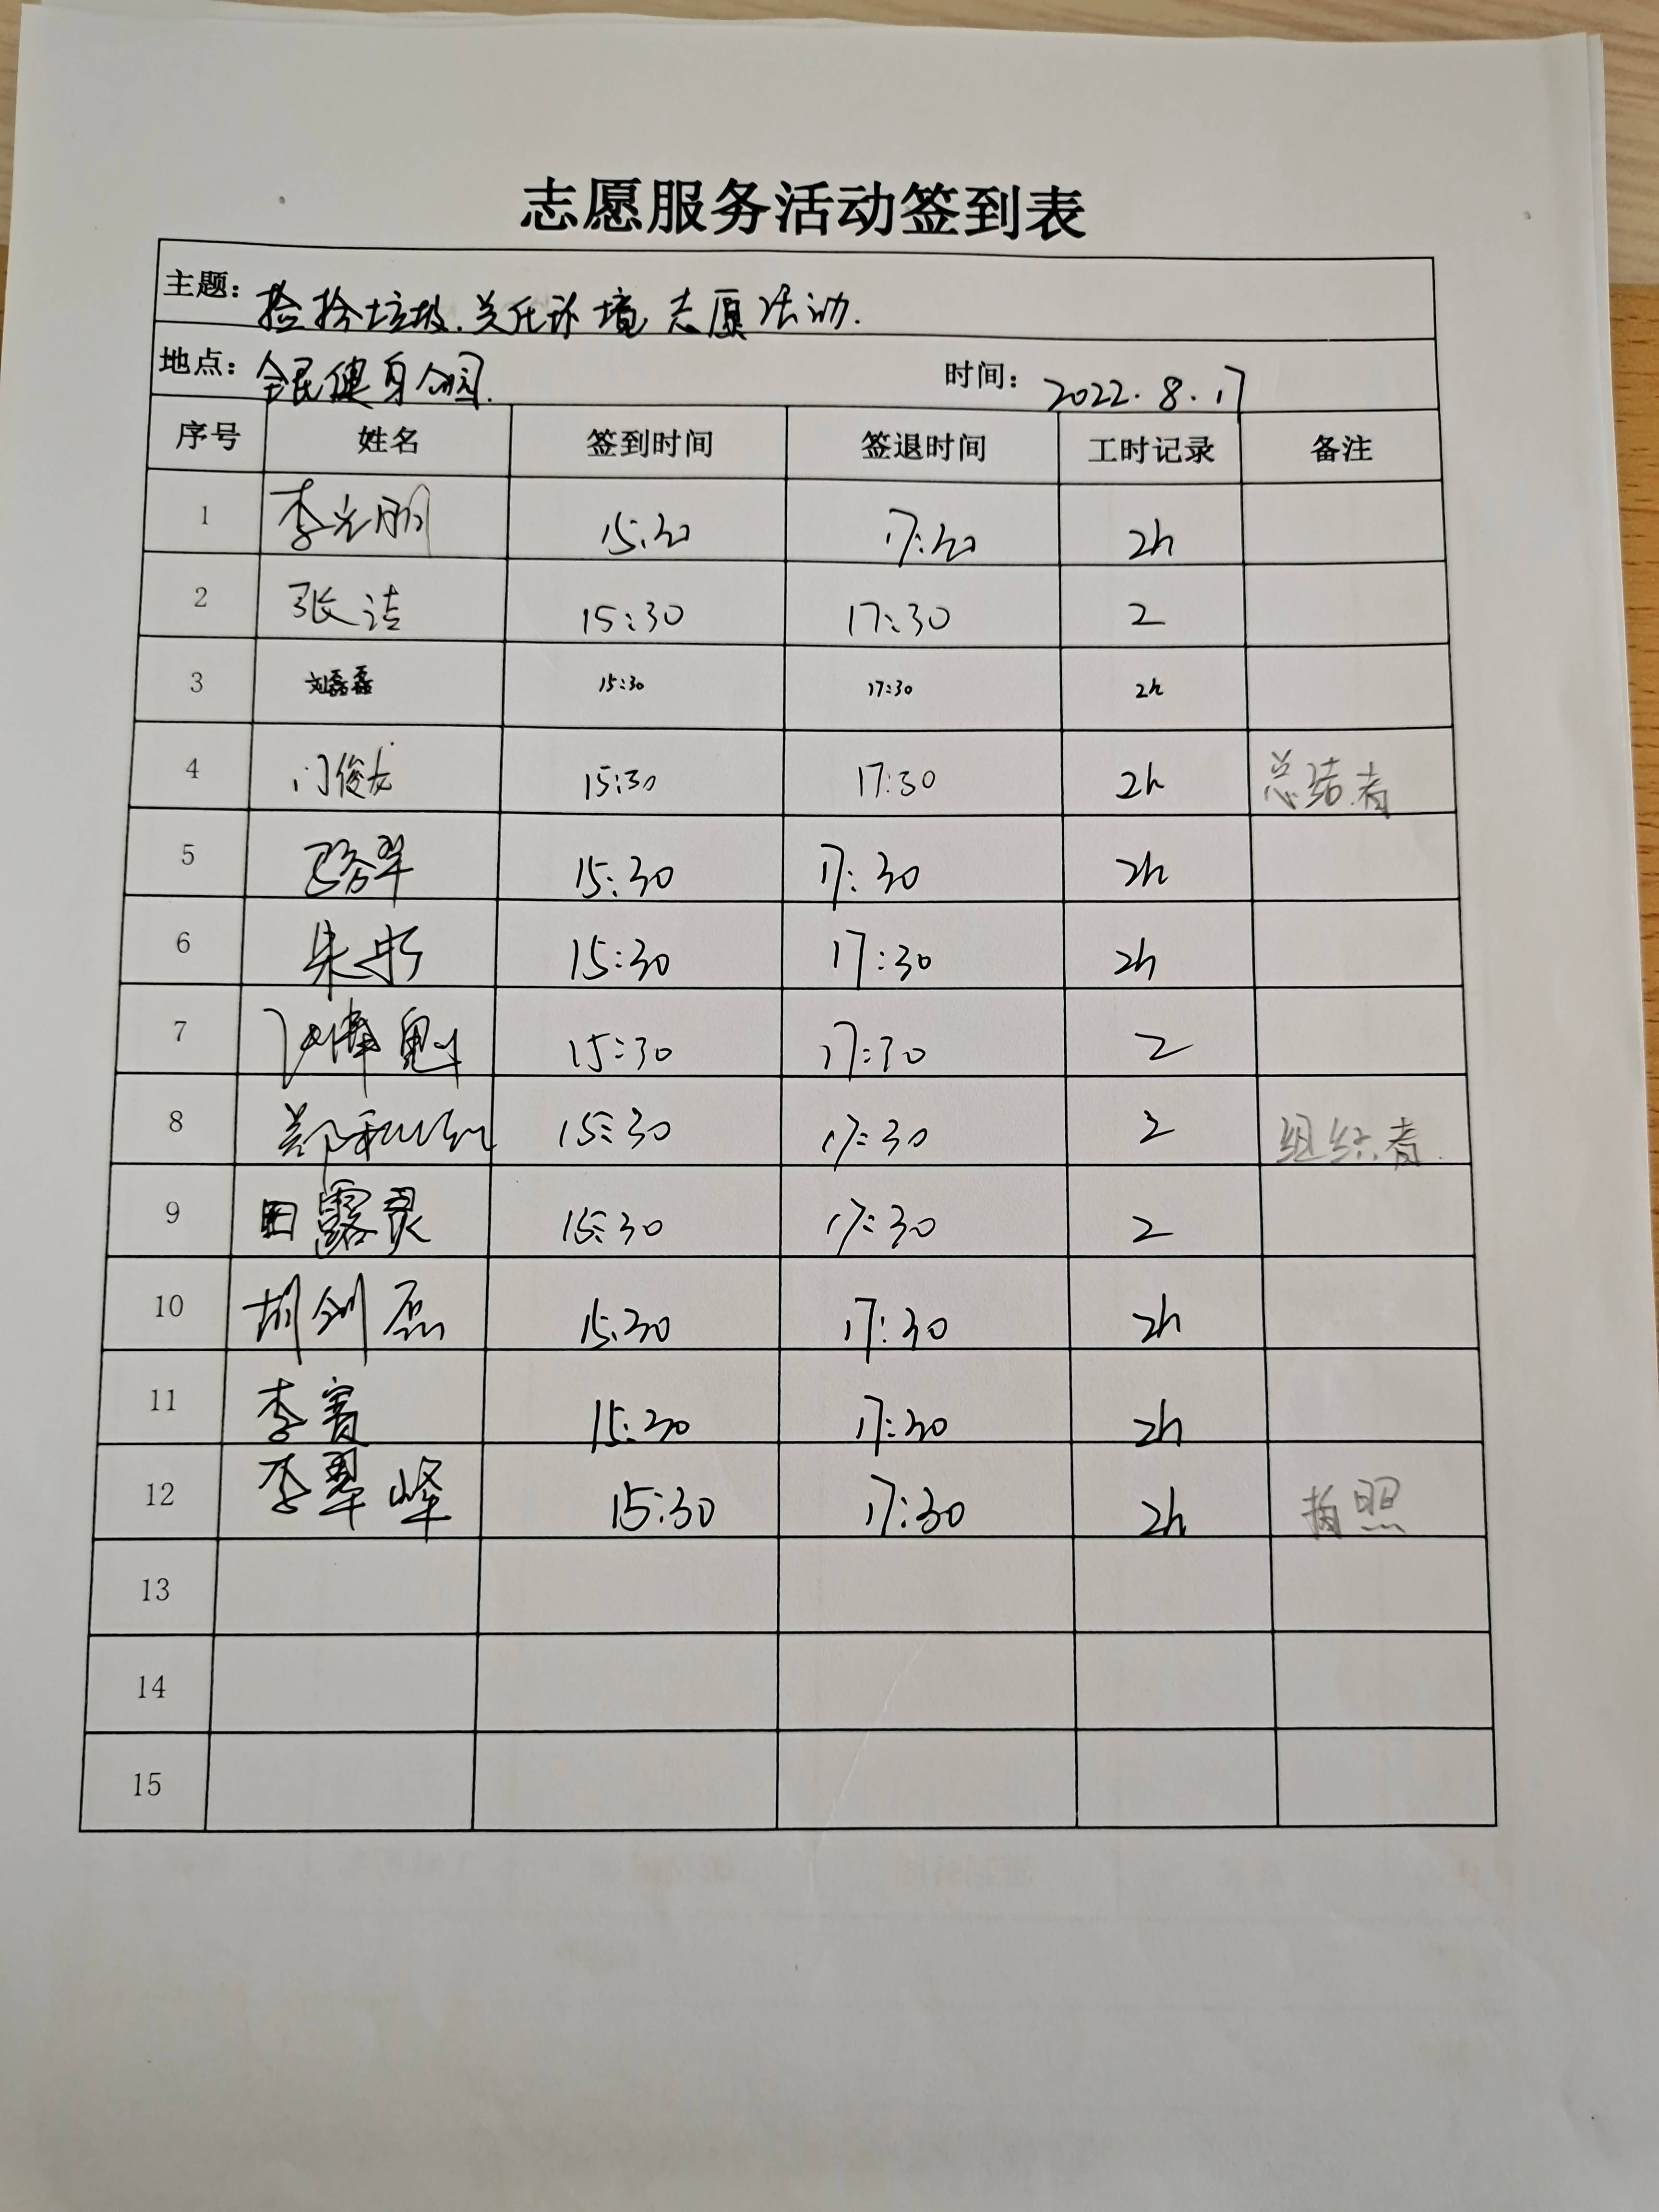 志愿服务活动签到表
主题：捡拾垃圾.关在环境志愿活动.
地点：全民健身公园. 时间：2022.8.17
序号 姓名 签到时间 签退时间 工时记录 备注
1 李光 15:30 17:30 2h
2 张洁 15:30 17:30 2
3 刘磊磊 15:30 17:30 2h
4 门俊龙 15:30 17:30 2h 总结者
5 15:30 17:30 2h
6 朱 15:30 17:30 2h
7 魁 15:30 17:30 2
8 郑和 15:30 17:30 2 组织者.
9 田露灵 15:30 17:30 2
10 胡剑磊 15:30 17:30 2h
11 李 15:30 17:30 2h
12 李翠峰 15:30 17:30 2h 拍照
13
14
15